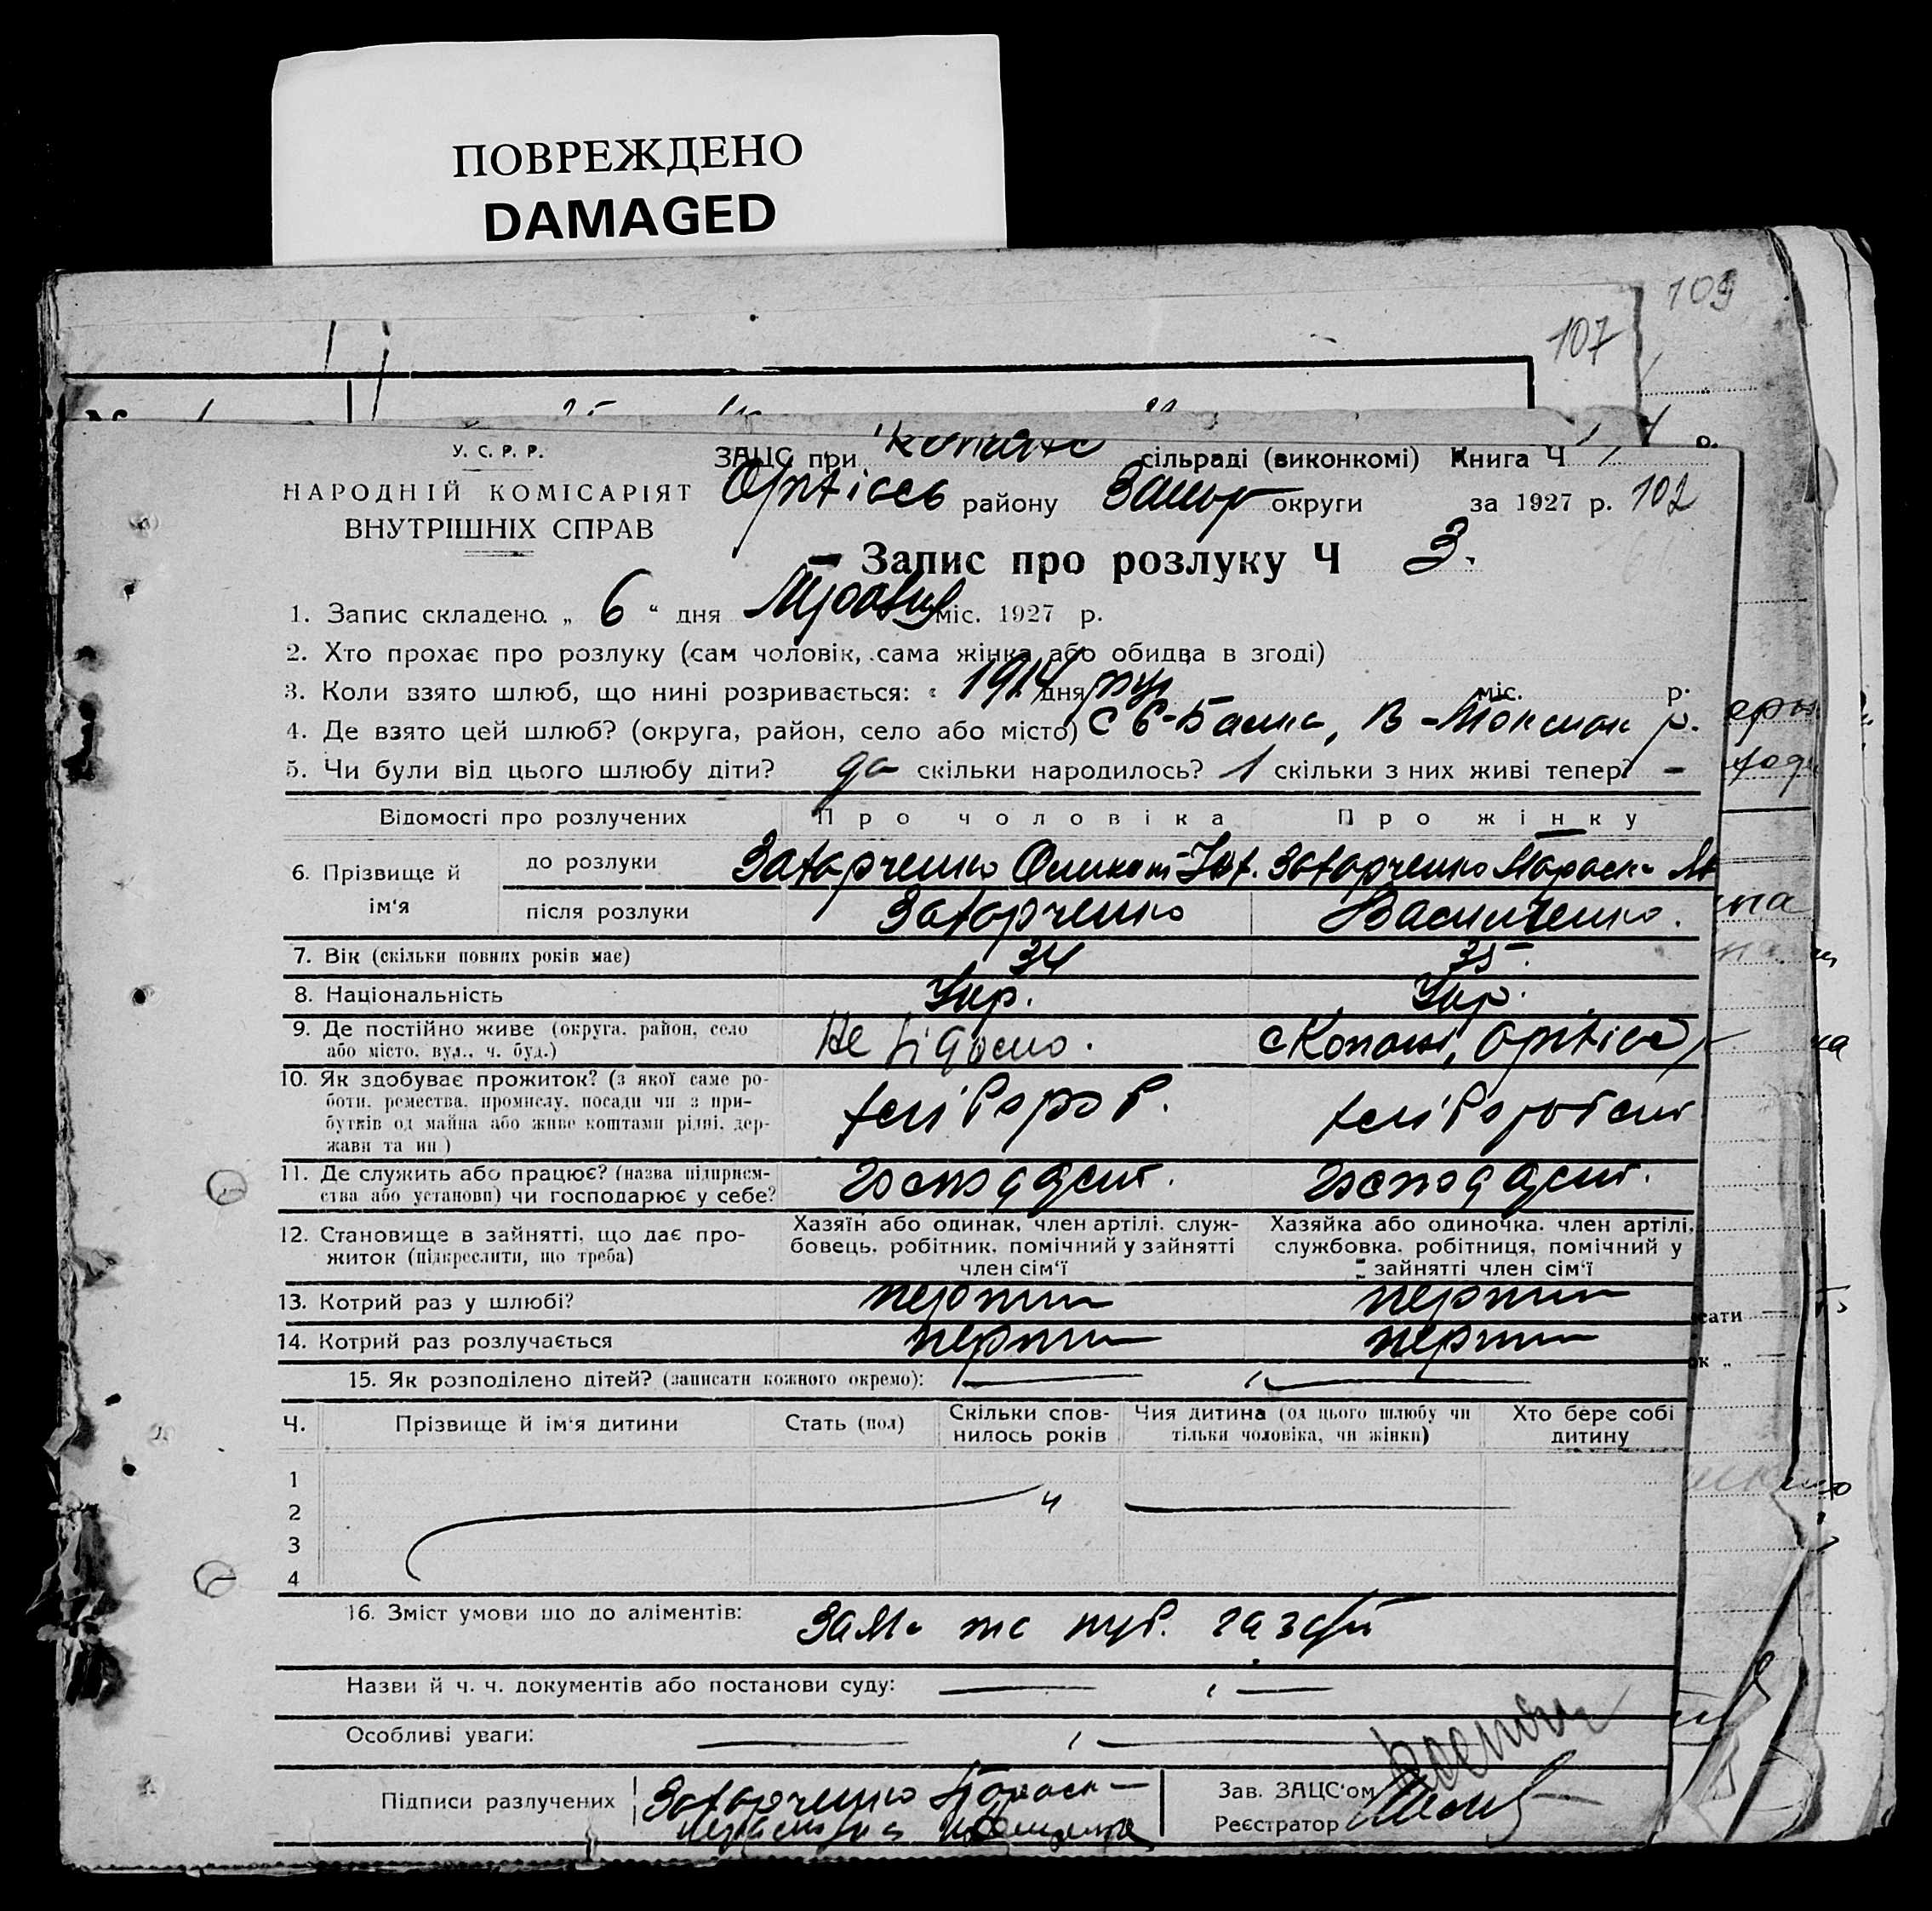 ПОВРЕЖДЕНО
DAMAGED
109
107
У. С. Р. Р.
НАРОДНІЙ КОМІСАРІЯТ
ВНУТРІШНІХ СПРАВ
ЗАЦС при сільраді (виконкомі) Книга Ч 1
району Запор округи за 1927 р. 102
Запис про розлуку Ч 3.
1. Запис складено „ 6 “ дня Травня міс. 1927 р.
2. Хто прохає про розлуку (сам чоловік, сама жінка або обидва в згоді)
3. Коли взято шлюб, що нині розривається: „ 1914 дня рку міс. р.
4. Де взято цей шлюб? (округа, район, село або місто) В-Токмак р.
5. Чи були від цього шлюбу діти? да скільки народилось? 1 скільки з них живі тепер? –
Відомості про розлучених Про чоловіка Про жінку
6. Прізвище й ім‘я
до розлуки Захарченко Захарченко Параска
після розлуки Захарченко Василченко.
7. Вік (скільки повних років має) 34 35.
8. Національність Укр. Укр.
9. Де постійно живе (округа, район, село або місто, вул., ч. буд.) Не відомо. с Копані, Оріхів
10. Як здобуває прожиток? (з якої саме роботи, ремества, промислу, посади чи з прибутків од майна або живе коштами рідні, держави та ин) хлібороб. хлібороб
11. Де служить або працює? (назва підприємства або установи) чи господарює у себе?
12. Становище в зайнятті, що дає прожиток (підкреслити, що треба)
Хазяїн або одинак, член артілі, службовець, робітник, помічний у зайнятті член сім‘ї
Хазяйка або одиночка, член артілі, службовка, робітниця, помічний у зайнятті член сім‘ї
13. Котрий раз у шлюбі? первий первий
14. Котрий раз розлучається первий первий
15. Як розподілено дітей? (записати кожного окремо):
Ч. Прізвище й ім‘я дитини Стать (пол) Скільки сповнилось років Чия дитина (од цього шлюбу чи тільки чоловіка, чи жінки) Хто бере собі дитину
1
2
3
4
16. Зміст умови що до аліментів:
Назви й ч. ч. документів або постанови суду:
Особливі уваги:
Підписи разлучених Захарченко Параск
Зав. ЗАЦС‘ом
Реєстратор